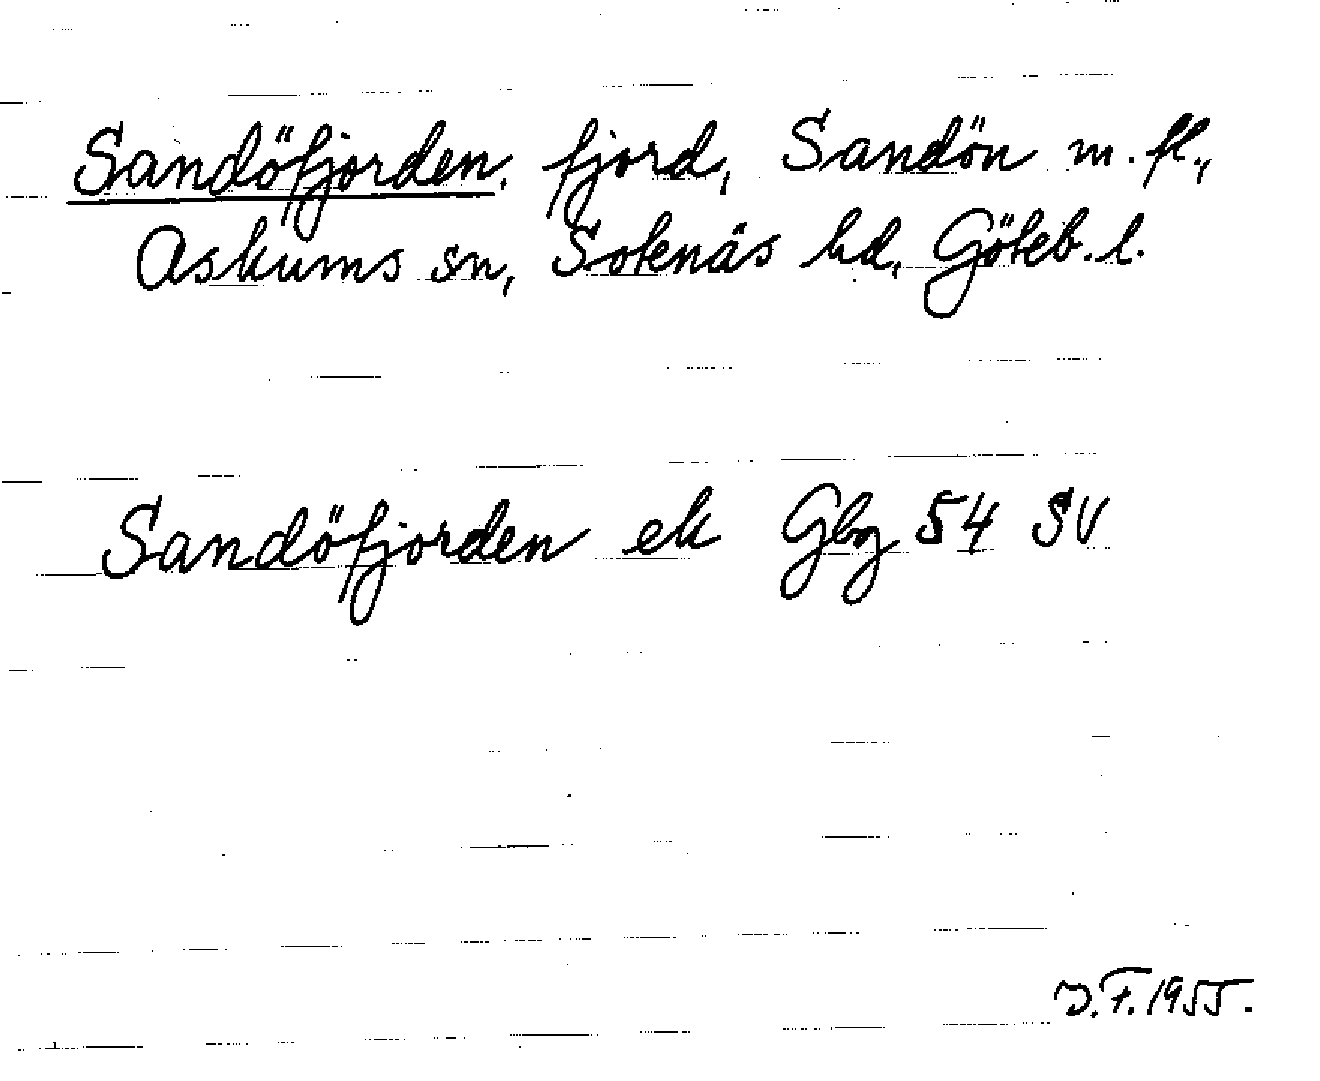 Sandöfjorden, fjord, Sandön m. fl.,
Askums sn, Sotenäs hd, Göteb. l.
Sandöfjorden ek Gbg 54 SV
D.F. 1955.